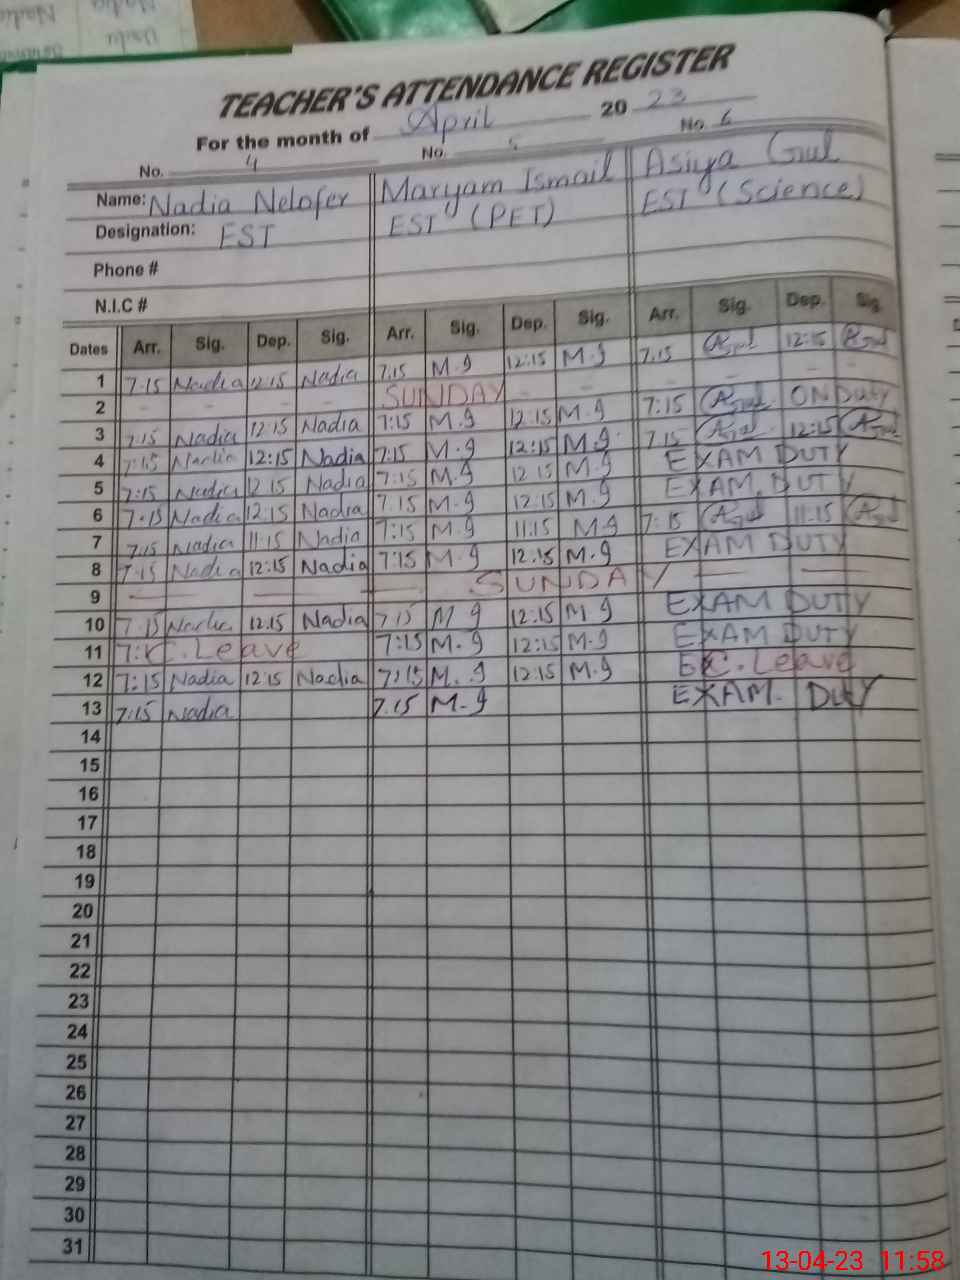 TEACHER'S ATTENDANCE REGISTER
For the month of April 20 23
No. 4 No. 5 No. 6
Name: Nadia Nelofer Maryam Ismail Asiya Gul
Designation: EST EST (PET) EST (Science)
Phone #
N.I.C #
Dates Arr. Sig. Dep. Sig. Arr. Sig. Dep. Sig. Arr. Sig. Dep. Sig.
1 7.15 Nadia 12.15 Nadia 7.15 M.g 12:15 M.g 7.15 Agul 12:15 Agul
2 - - - - SUNDAY - - - - - -
3 7.15 Nadia 12:15 Nadia 7:15 M.g 12.15 M.g 7:15 Agul ON Duty
4 7:15 Nadia 12:15 Nadia 7:15 M.g 12:15 M.g. 7.15 Agul 12:15 Agul
5 7:15 Nadia 12.15 Nadia 7:15 M.g 12.15 M.g EXAM DUTY
6 7.15 Nadia 12:15 Nadia 7.15 M.g 12:15 M.g EXAM DUTY
7 7.15 Nadia 11.15 Nadia 7:15 M.g 11.15 M g 7:15 Agul 11.15 Agul
8 7.15 Nadia 12:15 Nadia 7:15 M.g 12:15 M.g EXAM DUTY
9 — — — SUNDAY — —
10 7.15 Nadia 12.15 Nadia 7.15 M g 12:15 M g EXAM DUTY
11 7: C. Leave 7:15 M.g 12:15 M.g EXAM DUTY
12 7:15 Nadia 12.15 Nadia 7:15 M.g 12.15 M.g C. Leave
13 7.15 Nadia 7.15 M.g EXAM. DUTY
14
15
16
17
18
19
20
21
22
23
24
25
26
27
28
29
30
31
13-04-23 11:58